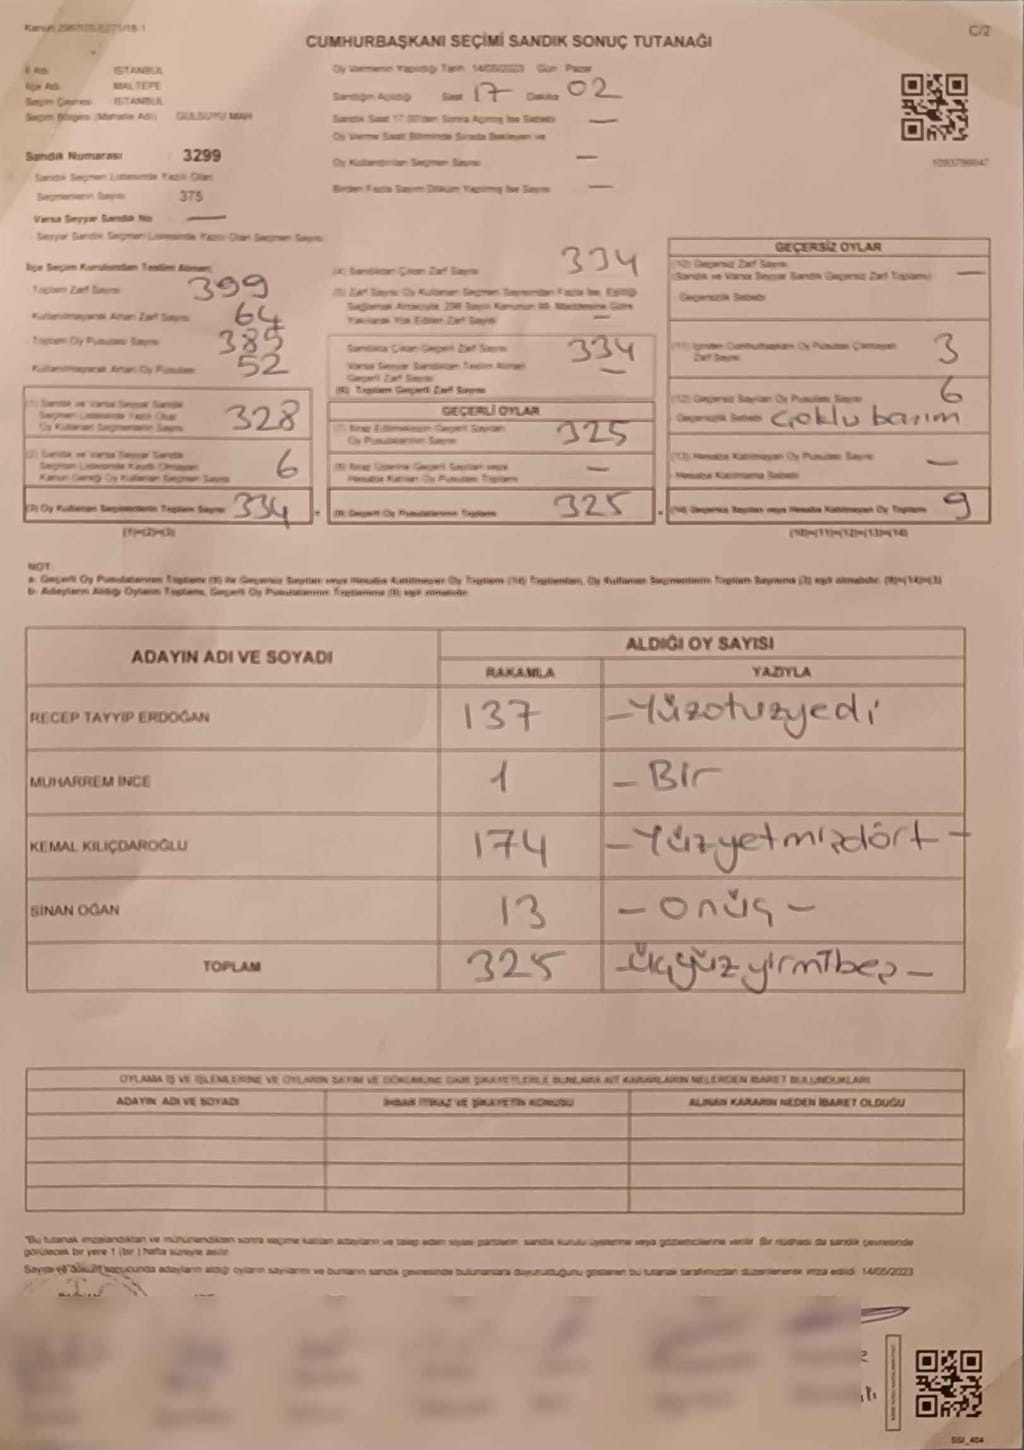 Kanun 298/105,6271/16.1
C/2
CUMHURBAŞKANI SEÇİMİ SANDIK SONUÇ TUTANAĞI
İl Adı : İSTANBUL
İlçe Adı : MALTEPE
Seçim Çevresi : İSTANBUL
Seçim Bölgesi (Mahalle Adı) : GÜLSUYU MAH
Sandık Numarası : 3299
Sandık Seçmen Listesinde Yazılı Olan
Seçmenlerin Sayısı : 375
Varsa Seyyar Sandık No : —
Seyyar Sandık Seçmen Listesinde Yazılı Olan Seçmen Sayısı
Oy Vermenin Yapıldığı Tarih: 14/05/2023 Gün: Pazar
Sandığın Açıldığı Saat 17 Dakika 02
Sandık Saat 17.00'den Sonra Açılmış İse Sebebi —
Oy Verme Saati Bitiminde Sırada Bekleyen ve
Oy Kullandırılan Seçmen Sayısı —
Birden Fazla Sayım Döküm Yapılmış İse Sayısı —
İlçe Seçim Kurulundan Teslim Alınan;
Toplam Zarf Sayısı 399
Kullanılmayarak Artan Zarf Sayısı 64
Toplam Oy Pusulası Sayısı 385
Kullanılmayarak Artan Oy Pusulası 52
(1) Sandık ve Varsa Seyyar Sandık
Seçmen Listesinde Yazılı Olup
Oy Kullanan Seçmenlerin Sayısı 328
(2) Sandık ve Varsa Seyyar Sandık
Seçmen Listesinde Kayıtlı Olmayan
Kanun Gereği Oy Kullanan Seçmen Sayısı 6
(3) Oy Kullanan Seçmenlerin Toplam Sayısı 334
(1)+(2)=(3)
(4) Sandıktan Çıkan Zarf Sayısı 334
(5) Zarf Sayısı Oy Kullanan Seçmen Sayısından Fazla İse, Eşitliği
Sağlamak Amacıyla 298 Sayılı Kanunun 98. Maddesine Göre
Yakılarak Yok Edilen Zarf Sayısı —
Sandıkta Çıkan Geçerli Zarf Sayısı 334
Varsa Seyyar Sandıktan Teslim Alınan
Geçerli Zarf Sayısı —
(6) Toplam Geçerli Zarf Sayısı
GEÇERLİ OYLAR
(7) İtiraz Edilmeksizin Geçerli Sayılan
Oy Pusulalarının Sayısı 325
(8) İtiraz Üzerine Geçerli Sayılan veya
Hesaba Katılan Oy Pusulası Toplamı —
(9) Geçerli Oy Pusulalarının Toplamı 325
GEÇERSİZ OYLAR
(10) Geçersiz Zarf Sayısı
(Sandık ve Varsa Seyyar Sandık Geçersiz Zarf Toplamı) —
Geçersizlik Sebebi
(11) İçinden Cumhurbaşkanı Oy Pusulası Çıkmayan
Zarf Sayısı 3
(12) Geçersiz Sayılan Oy Pusulası Sayısı 6
Geçersizlik Sebebi Çoklu basım
(13) Hesaba Katılmayan Oy Pusulası Sayısı —
Hesaba Katılmama Sebebi
(14) Geçersiz Sayılan veya Hesaba Katılmayan Oy Toplamı 9
(10)+(11)+(12)+(13)=(14)
NOT:
a- Geçerli Oy Pusulalarının Toplamı (9) ile Geçersiz Sayılan veya Hesaba Katılmayan Oy Toplamı (14) Toplamları, Oy Kullanan Seçmenlerin Toplam Sayısına (3) eşit olmalıdır. (9)+(14)=(3)
b- Adayların Aldığı Oyların Toplamı, Geçerli Oy Pusulalarının Toplamına (9) eşit olmalıdır.
ADAYIN ADI VE SOYADI
ALDIĞI OY SAYISI
RAKAMLA YAZIYLA
RECEP TAYYİP ERDOĞAN 137 -Yüzotuzyedi
MUHARREM İNCE 1 - Bir
KEMAL KILIÇDAROĞLU 174 -Yüzyetmişdört-
SİNAN OĞAN 13 - onüç -
TOPLAM 325 -üçyüzyirmibeş-
OYLAMA İŞ VE İŞLEMLERİNE VE OYLARIN SAYIM VE DÖKÜMÜNE DAİR ŞİKAYETLERLE BUNLARA AİT KARARLARIN NELERDEN İBARET BULUNDUKLARI
ADAYIN ADI VE SOYADI
İHBAR İTİRAZ VE ŞİKAYETİN KONUSU
ALINAN KARARIN NEDEN İBARET OLDUĞU
*Bu tutanak imzalandıktan ve mühürlendikten sonra seçime katılan adayların ve talep eden siyasi partilerin sandık kurulu üyelerine veya gözlemcilerine verilir. Bir nüshası da sandık çevresinde
görülecek bir yere 1 (bir ) hafta süreyle asılır.
Sayım ve döküm sonucunda adayların aldığı oyların sayılarını ve bunların sandık çevresinde bulunanlara duyurulduğunu gösteren bu tutanak tarafımızdan düzenlenerek imza edildi. 14/05/2023
SSI_404